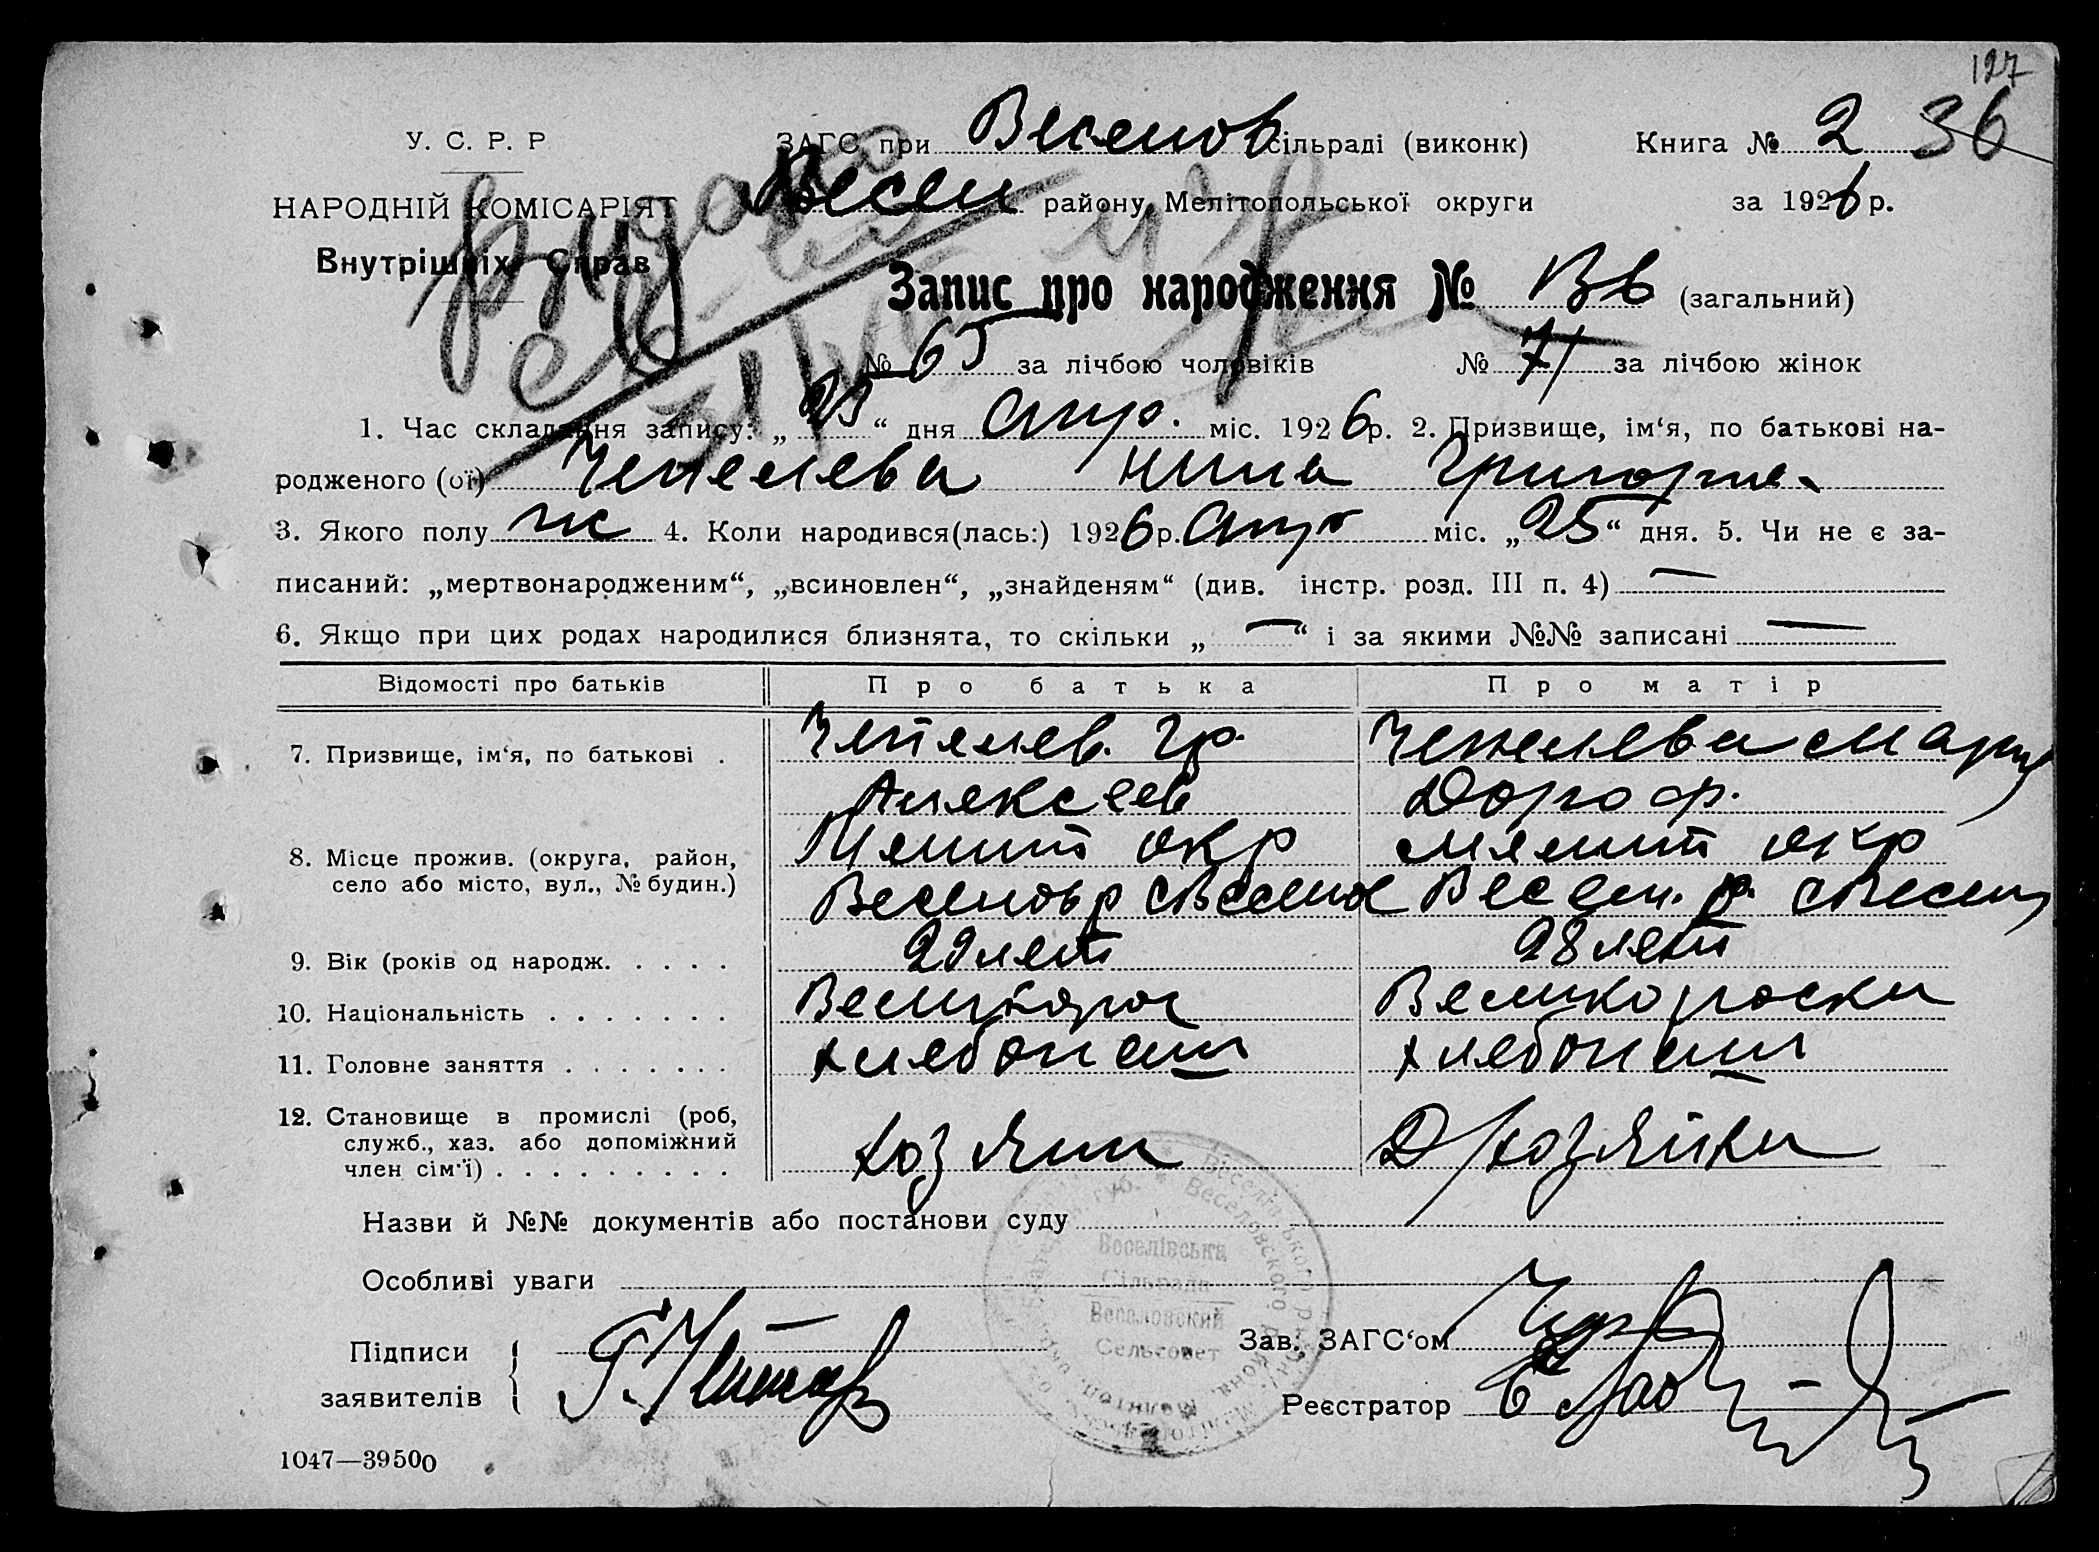 127
У. С. Р. Р
ЗАГС при Веселов сільраді (виконк)
Книга № 2 36
НАРОДНІЙ КОМІСАРІЯТ
Весел району Мелітопольської округи
за 1926 р.
Внутрішніх Справ
Запис про народження № (загальний)
№ 65 за лічбою чоловіків № 71 за лічбою жінок
1. Час складання запису: „ “ дня Апр. міс. 1926р. 2. Призвище, ім‘я, по батькові на-
родженого (ої) Чепелева Нина Григорье.
3. Якого полу жс 4. Коли народився(лась:) 1926р. Апр міс. „25“ дня. 5. Чи не є за-
писаний: „мертвонародженим“, „всиновлен“, „знайденям“ (див. інстр. розд. III п. 4) —
6. Якщо при цих родах народилися близнята, то скільки „ — “ і за якими №№ записані —
Відомості про батьків Про батька Про матір
7. Призвище, ім‘я, по батькові . Чепелев. Гр. Чепелева Мария
Алексеев Дороф.
8. Місце прожив. (округа, район, Мелит окр Мелит окр
село або місто, вул., № будин.) Веселов р с Веселое Весел. р. с Весел
9. Вік (років од народж. . . . . 29 лет 28 лет
10. Національність . . . . . . . Великорос Великороска
11. Головне заняття . . . . . . . хлебопаш хлебопаш
12. Становище в промислі (роб,
служб., хаз. або допоміжний
член сім‘ї) . . . . . . . . . хозяин Д/хозяйка
Назви й №№ документів або постанови суду
Особливі уваги
Веселівська
Сільрада
Веселовский
Сельсовет
Підписи
заявителів
Зав. ЗАГС‘ом
Реєстратор
1047—39500